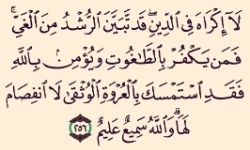 لَآ إِكۡرَاهَ فِي ٱلدِّينِۖ قَد تَّبَيَّنَ ٱلرُّشۡدُ مِنَ ٱلۡغَيِّۚ
فَمَن يَكۡفُرۡ بِٱلطَّٰغُوتِ وَيُؤۡمِنۢ بِٱللَّهِ
فَقَدِ ٱسۡتَمۡسَكَ بِٱلۡعُرۡوَةِ ٱلۡوُثۡقَىٰ لَا ٱنفِصَامَ
لَهَاۗ وَٱللَّهُ سَمِيعٌ عَلِيمٌ ٢٥٦